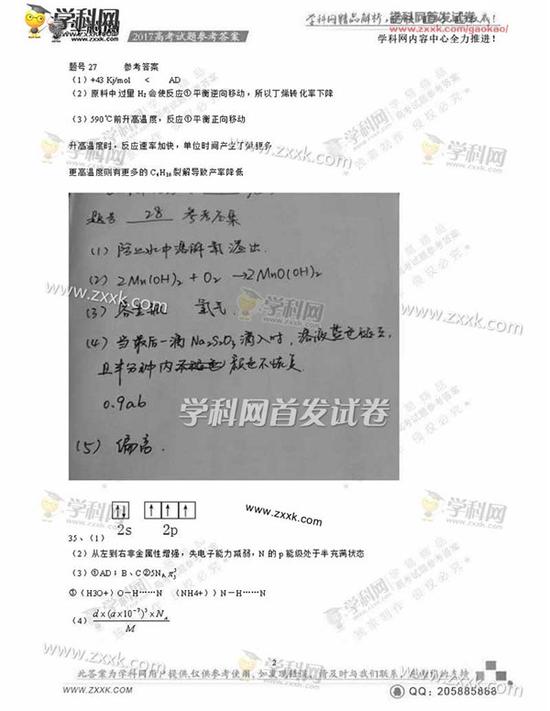 学科网
www.zxxk.com
2017高考试题参考答案
学科网精品解析
zxxk.com/gaokao/
学科网内容中心全力推进！
题号 27 参考答案
（1）+43 Kj/mol < AD
（2）原料中过量 H₂会使反应①平衡逆向移动，所以丁烯转化率下降
（3）590℃前升高温度，反应①平衡正向移动
升高温度时，反应速率加快，单位时间产生丁烯更多
更高温度则有更多的 C₄H₁₀裂解导致产率降低
题号 28 参考答案
(1) 防止水中溶解氧逸出.
(2) 2Mn(OH)₂ + O₂ →2MnO(OH)₂
(3) 容量瓶 氯气
(4) 当最后一滴Na₂S₂O₃滴入时,溶液蓝色
且半分钟内 颜色不恢复
0.9ab
(5) 偏高
学科网首发试卷
35、（1）
2s 2p
（2）从左到右非金属性增强，失电子能力减弱，N 的 p 能级处于半充满状态
（3）①AD；B、C ②5Nₐ
③（H3O+）O－H……N （NH4+））N－H……N
（4） d×(a×10⁻⁷)³×Nₐ / M
2
此答案为学科网用户提供,仅供参考使用,如发现错误,请及时与我们联系,
www.zxxk.com
QQ：205885868